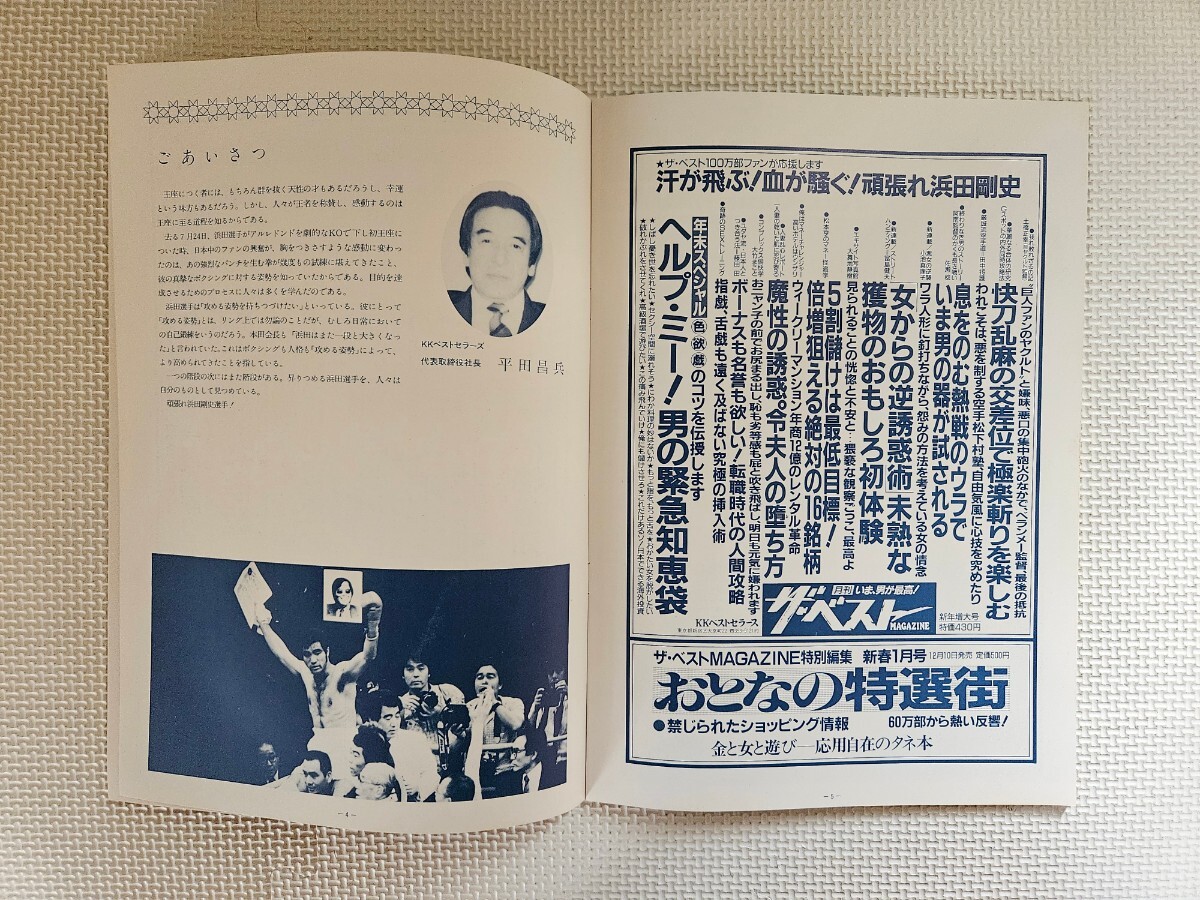 ごあいさつ
王座につく者には、もちろん群を抜く天性の才もあるだろうし、幸運
という味方もあるだろう。しかし、人々が王者を称賛し、感動するのは
王座に至る道程を知るからである。
去る7月24日、浜田選手がアルレドンドを劇的なKOで下し初王座に
ついた時、日本中のファンの興奮が、胸をつきさすような感動に変わっ
たのは、あの強烈なパンチを生む拳が幾度もの試練に堪えてきたこと、
彼の真摯なボクシングに対する姿勢を知っていたからである。目的を達
成させるためのプロセスに人々は多くを学んだのである。
浜田選手は“攻める姿勢を持ちつづけたい”といっている。彼にとって
“攻める姿勢”とは、リング上では勿論のことだが、むしろ日常において
の自己鍛練をいうのだろう。本田会長も「浜田はまた一段と大きくなっ
た」と言われていた。これはボクシングも人格も“攻める姿勢”によって、
より高められてきたことを指している。
一つの階段の次にはまた階段がある。昇りつめる浜田選手を、人々は
自分のものとして見つめている。
頑張れ浜田剛史選手!
KKベストセラーズ
代表取締役社長 平田昌兵
—4—
★ザ・ベスト100万部ファンが応援します
汗が飛ぶ!血が騒ぐ!頑張れ浜田剛史
“巨人ファンのヤクルト”と嫌味、悪口の集中砲火のなかで、ベランメー監督、最後の抵抗
快刀乱麻の交差位で極楽斬りを楽しむ
われこそは、悪を制する空手松下村塾、自由気風に心技を究めたり
息をのむ熱戦のウラで
いま男の器が試される
ワラ人形に釘打ちながら、怨みの方法を考えている女の情念
「女からの逆誘惑術」未熟な
獲物のおもしろ初体験
見られることの恍惚と不安と…猥褻な観察ごっこ、最高よ
5割儲けは最低目標!
倍増狙える絶対の16銘柄
ウィークリーマンション年商12億のレンタル革命
魔性の誘惑。令夫人の堕ち方
おニャン子の前でお尻まる出し、恥も劣等感も屁と吹き飛ばし、明日も元気に嫌われます
ボーナスも名誉も欲しい!転職時代の人間攻略
指戯、舌戯も遠く及ばない究極の挿入術
年末スペシャル 色欲戯のコツを伝授します
ヘルプ・ミー!男の緊急知恵袋
月刊 いま、男が最高!
ザ・ベスト
MAGAZINE
新年増大号
特価430円
KKベストセラーズ
ザ・ベストMAGAZINE特別編集 新春1月号 12月10日発売 定価500円
おとなの特選街
●禁じられたショッピング情報 60万部から熱い反響!
金と女と遊び—応用自在のタネ本
—5—